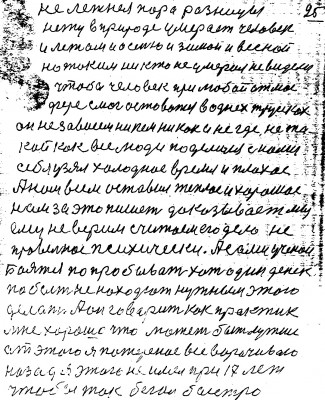 не летняя пора разницы 25
нету в природе умерает человек
и летом и осенью и зимой и весной
но таким ни кто не умерал не видели
чтобы человек при любой атмос
фере смог оставатся в одних трусиках
он не зависем ни кем никак и не где не та
кой как все люди поделился с нами
себе узял холодное время и плохое
А нам всем оставил теплое и хорошое
нам за это пишет доказывает мы
ему не верим считаем его дело не
правелное психически. А сами ученые
боятся по пробывать хотя один денек
побыть не находят нужным этого
делать. А он говорит как практик
мне хорошо что может быть лучше
от этого я пожделое все ворочиваю
назад я этого не имел при 17 лет
чтобы я так бегал быстро